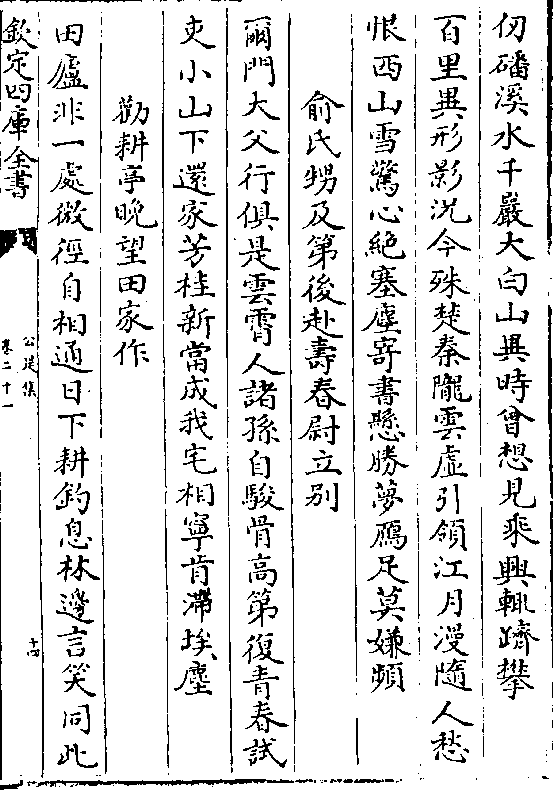 仞磻溪水千巖大白山異時曾想見乘興輙躋攀
百里異形影况今殊楚秦隴雲虛引領江月漫隨人愁
恨西山雪驚心絶塞塵寄書懸勝夢鴈足莫嫌頻
俞氏甥及第後赴壽春尉立别
爾門大父行俱是雲霄人諸孫自駿骨高第復青春試
吏小山下還家芳桂新當成我宅相寧肯滯埃塵
勸耕亭晚望田家作
田廬非一處微徑自相通日下耕釣息林邊言笑同此
欽定四庫全書
公是集
卷二十一
十四